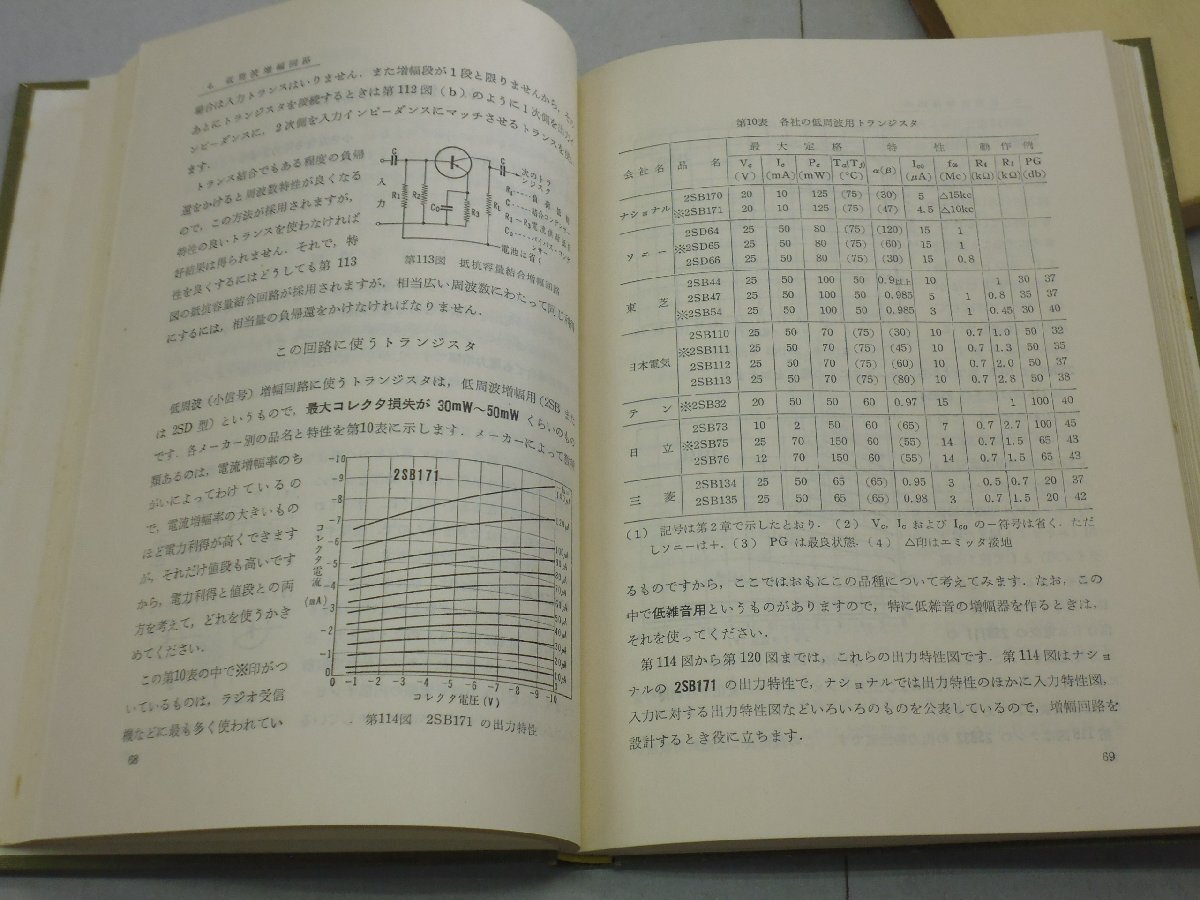 4. 低周波増幅回路
場合は入力トランスはいりません．また増幅段が1段と限りませんから，その
あとにトランジスタを接続するときは第112図 (b) のように1次側を出力イ
ンピーダンスに，2次側を入力インピーダンスにマッチさせるトランスを使い
ます．
トランス結合でもある程度の負帰
還をかけると周波数特性が良くなる
ので，この方法が採用されますが，
特性の良いトランスを使わなければ
好結果は得られません．それで，特
性を良くするにはどうしても第 113
図の抵抗容量結合回路が採用されますが，相当広い周波数にわたって同じ
にするには，相当量の負帰還をかけなければなりません．
C
入
力
R1
R2
C2
R3
RL
C
次のトラ
ンジスタ
RL……負荷抵抗
C……結合コンデンサー
R1〜R3 電流供給
C2……バイパス・コンデ
ンサー
電池に省く
第113図 抵抗容量結合増幅回路
この回路に使うトランジスタ
低周波（小信号）増幅回路に使うトランジスタは，低周波増幅用（2SB また
は 2SD 型）というもので，最大コレクタ損失が 30mW〜50mW くらいのもの
です．各メーカー別の品名と特性を第10表に示します．メーカーによって数種
類あるのは，電流増幅率のち
がいによってわけているの
で，電流増幅率の大きいもの
ほど電力利得が高くできます
が，それだけ値段も高いです
から，電力利得と値段との両
方を考えて，どれを使うかき
めてください．
この第10表の中で※印がつ
いているものは，ラジオ受信
機などに最も多く使われてい
2SB171
コレクタ電流
(mA)
-10
-9
-8
-7
-6
-5
-4
-3
-2
-1
0
0 -1 -2 -3 -4 -5 -6 -7 -8 -9 -10
コレクタ電圧 (V)
第114図 2SB171 の出力特性
68
第10表 各社の低周波用トランジスタ
会社名 品名 最大定格 特性 動作例
Vc (V) Ic (mA) Pc (mW) Ta(Tj) (°C) α(β) Ico (μA) fα (Mc) Ri (kΩ) Rl (kΩ) PG (db)
ナショナル 2SB170 20 10 125 (75) (30) 5 △15kc
※2SB171 20 10 125 (75) (47) 4.5 △10kc
ソニー 2SD64 25 50 80 (75) (120) 15 1
※2SD65 25 50 80 (75) (60) 15 1
2SD66 25 50 80 (75) (30) 15 0.8
東芝 2SB44 25 50 100 50 0.9以上 10 1 30 37
2SB47 25 50 100 50 0.985 5 1 0.8 35 37
※2SB54 25 50 100 50 0.985 3 1 0.45 30 40
日本電気 2SB110 25 50 70 (75) (30) 10 0.7 1.0 50 32
※2SB111 25 50 70 (75) (45) 10 0.7 1.3 50 35
2SB112 25 50 70 (75) (60) 10 0.7 2.0 50 37
2SB113 25 50 70 (75) (80) 10 0.7 2.8 50 38
テン ※2SB32 20 50 50 60 0.97 15 1 100 40
日立 2SB73 10 2 50 60 (65) 7 0.7 2.7 100 45
※2SB75 25 70 150 60 (55) 14 0.7 1.5 65 43
2SB76 12 70 150 60 (55) 14 0.7 1.5 65 43
三菱 2SB134 25 50 65 (65) 0.95 3 0.5 0.7 20 37
2SB135 25 50 65 (65) 0.98 3 0.7 1.5 20 42
(1) 記号は第2章で示したとおり．(2) Vc，Ic および Ico の−符号は省く．ただ
しソニーは＋．(3) PG は最良状態．(4) △印はエミッタ接地
るものですから，ここではおもにこの品種について考えてみます．なお，この
中で低雑音用というものがありますので，特に低雑音の増幅器を作るときは，
それを使ってください．
第 114 図から第 120 図までは，これらの出力特性図です．第 114 図はナショ
ナルの 2SB171 の出力特性で，ナショナルでは出力特性のほかに入力特性図，
入力に対する出力特性図などいろいろのものを公表しているので，増幅回路を
設計するとき役に立ちます．
69